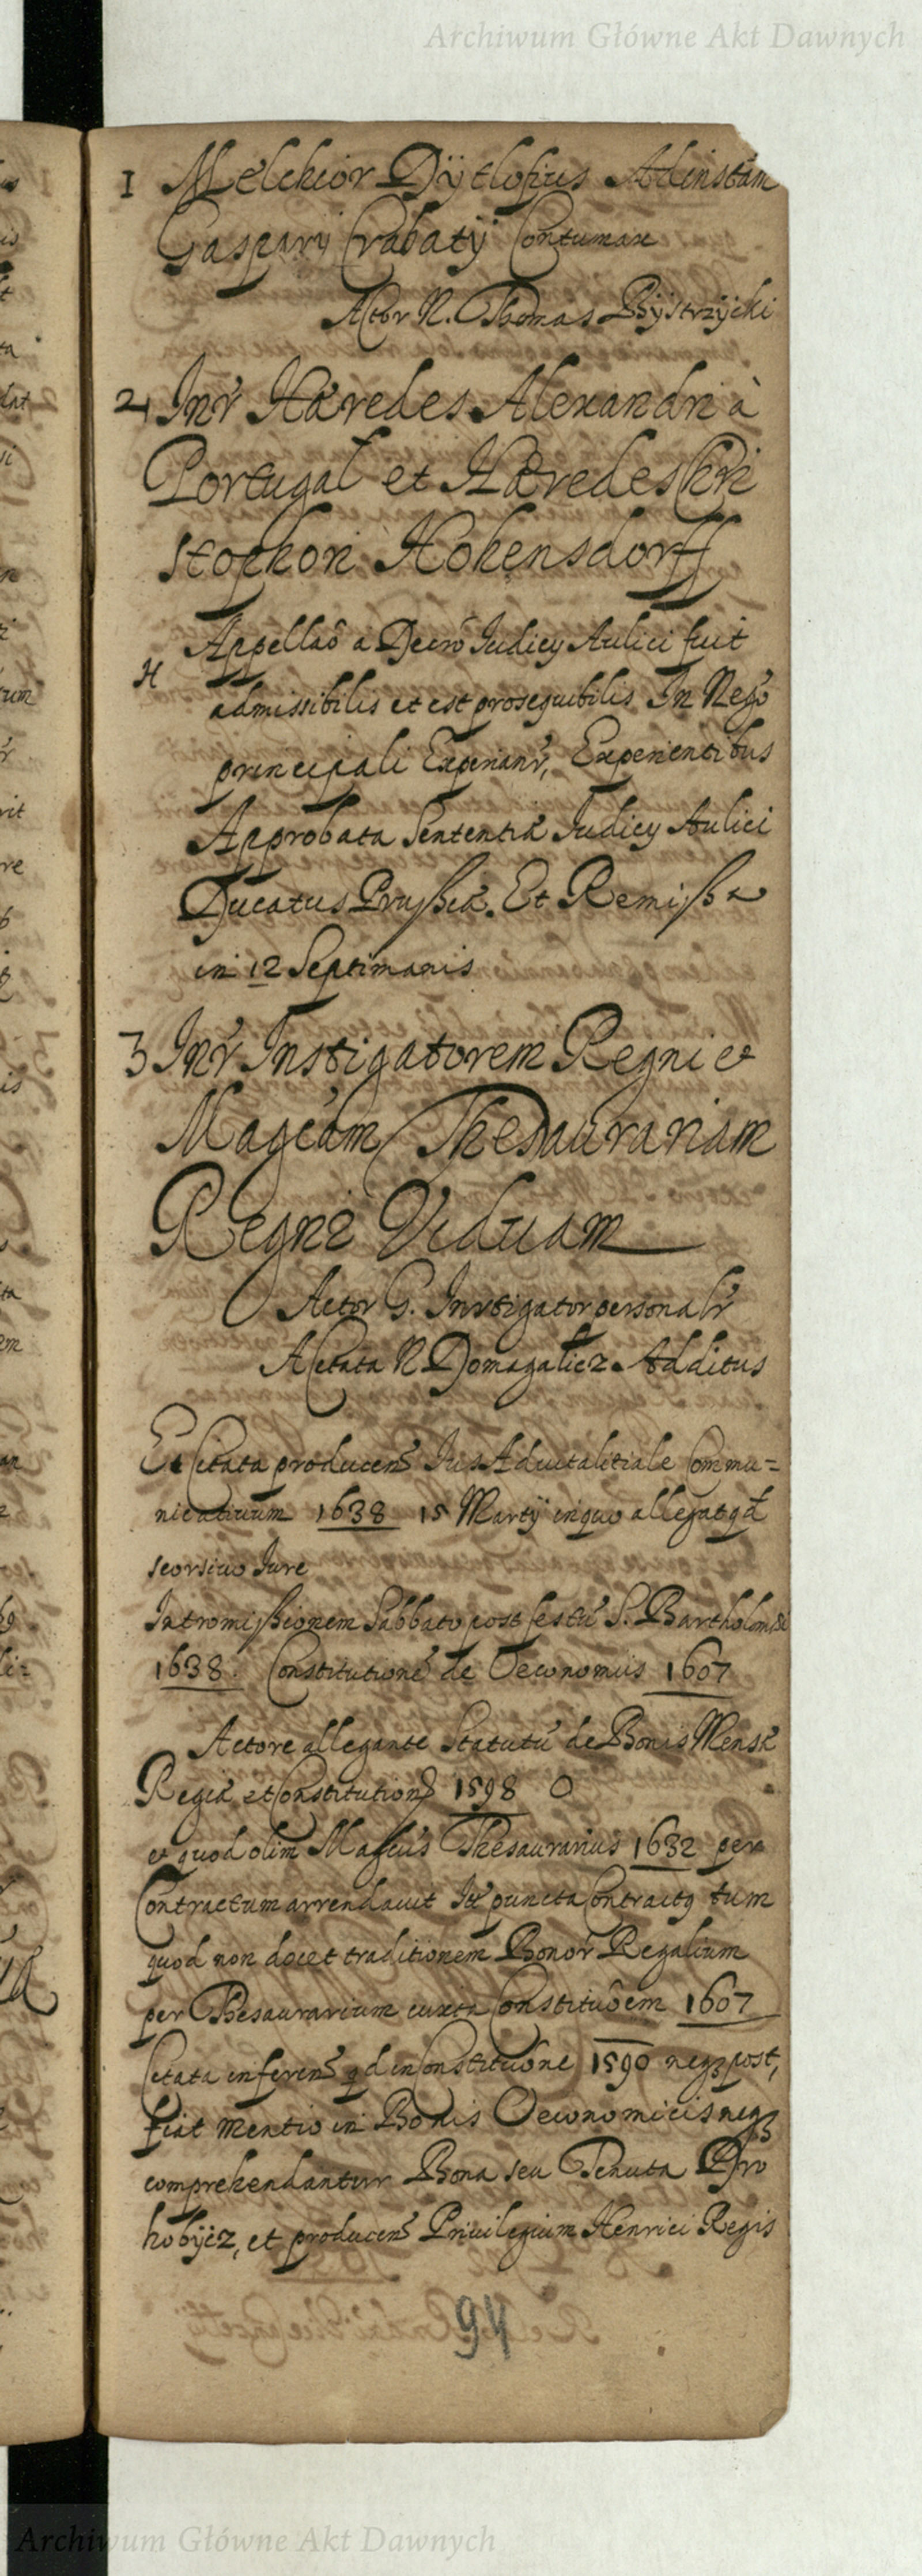 Archiwum Główne Akt Dawnych
1 Melchior Dÿtlofius Ad instam
Gasparÿ Crabatÿ Contumax
Actor N. Thomas Bÿstrzÿcki
2 Inř Hæredes Alexandri à
Portugal et Hæredes Chri
stophori Hohensdorff
Appellaõ a Decrõ Iudicÿ Aulici fuit
admissibilis et est prosequibilis In Negõ
principali Experianř, Experientibus
Approbata Sententia Iudicÿ Aulici
Ducatus Prussiæ. Et Remissa
in 12 Septimanis
3 Inř Instigatorem Regni et
Magcam Thesaurariam
Regni Viduam
Actor G. Instigator personalř
A Citata N Domagalicz Additus
Et Citata producens Ius Aduitalitiale Commu=
nicatiuum 1638 15 Martÿ in quo allegat qd
seorsiuo Iure
Intromissionem Sabbato post festũ S. Bartholomæi
1638. Constitutionẽ de Oeconomiis 1607
Actore allegante Statutũ de Bonis Mensæ
Regiæ et Constitution 1598 O
et quod olim Magcus Thesaurarius 1632 per
Contractum arrendauit puncta Contractq tum
quod non docet traditionem Bonoř Regalium
per Thesaurarium iuxta Constituõem 1607
Citata inferens qd in Constituõne 1590 neqз post,
fiat mentio in Bonis Oeconomicis neqз
comprehendantur Bona seu Tenuta Dro
hobÿcz, et producens Priuilegium Henrici Regis
94
Archiwum Główne Akt Dawnych